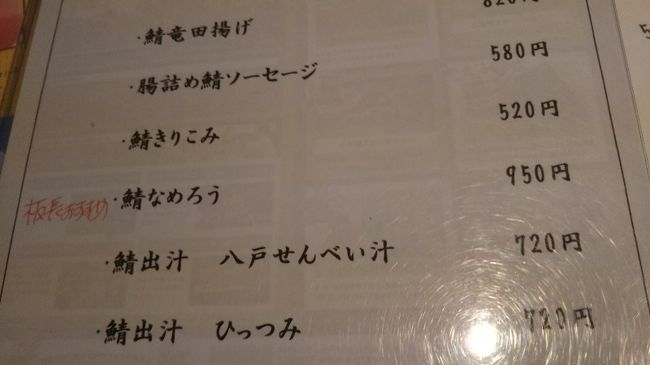 ・鯖竜田揚げ 820円
・腸詰め鯖ソーセージ 580円
・鯖きりこみ 520円
板長おすすめ ・鯖なめろう 950円
・鯖出汁 八戸せんべい汁 720円
・鯖出汁 ひっつみ 720円